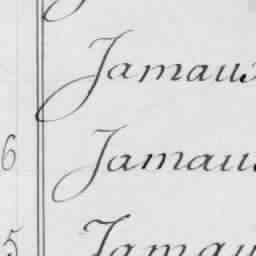 Jamaus
6 Jamaus
5 Jamau